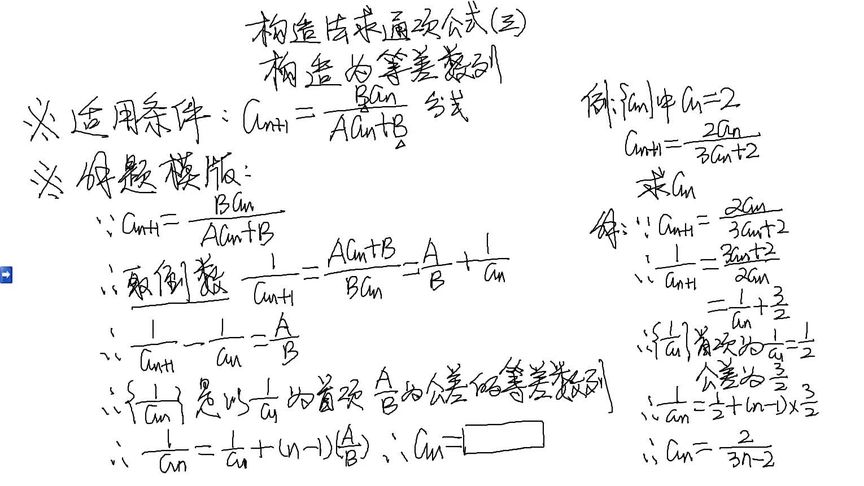 构造法求通项公式(三)
构造为等差数列
※ 适用条件: a_{n+1} = \frac{Ba_n}{Aa_n+B} 分式
※ 解题模版:
∵ a_{n+1} = \frac{Ba_n}{Aa_n+B}
∴ 取倒数 \frac{1}{a_{n+1}} = \frac{Aa_n+B}{Ba_n} = \frac{A}{B} + \frac{1}{a_n}
∴ \frac{1}{a_{n+1}} - \frac{1}{a_n} = \frac{A}{B}
∴ {\frac{1}{a_n}} 是以 \frac{1}{a_1} 为首项 \frac{A}{B} 为公差的等差数列
∴ \frac{1}{a_n} = \frac{1}{a_1} + (n-1)(\frac{A}{B}) ∴ a_n =
例: {a_n} 中 a_1 = 2
a_{n+1} = \frac{2a_n}{3a_n+2}
求 a_n
解: ∵ a_{n+1} = \frac{2a_n}{3a_n+2}
∴ \frac{1}{a_{n+1}} = \frac{3a_n+2}{2a_n}
= \frac{1}{a_n} + \frac{3}{2}
∴ {\frac{1}{a_n}} 首项为 \frac{1}{a_1} = \frac{1}{2}
公差为 \frac{3}{2}
∴ \frac{1}{a_n} = \frac{1}{2} + (n-1) × \frac{3}{2}
∴ a_n = \frac{2}{3n-2}